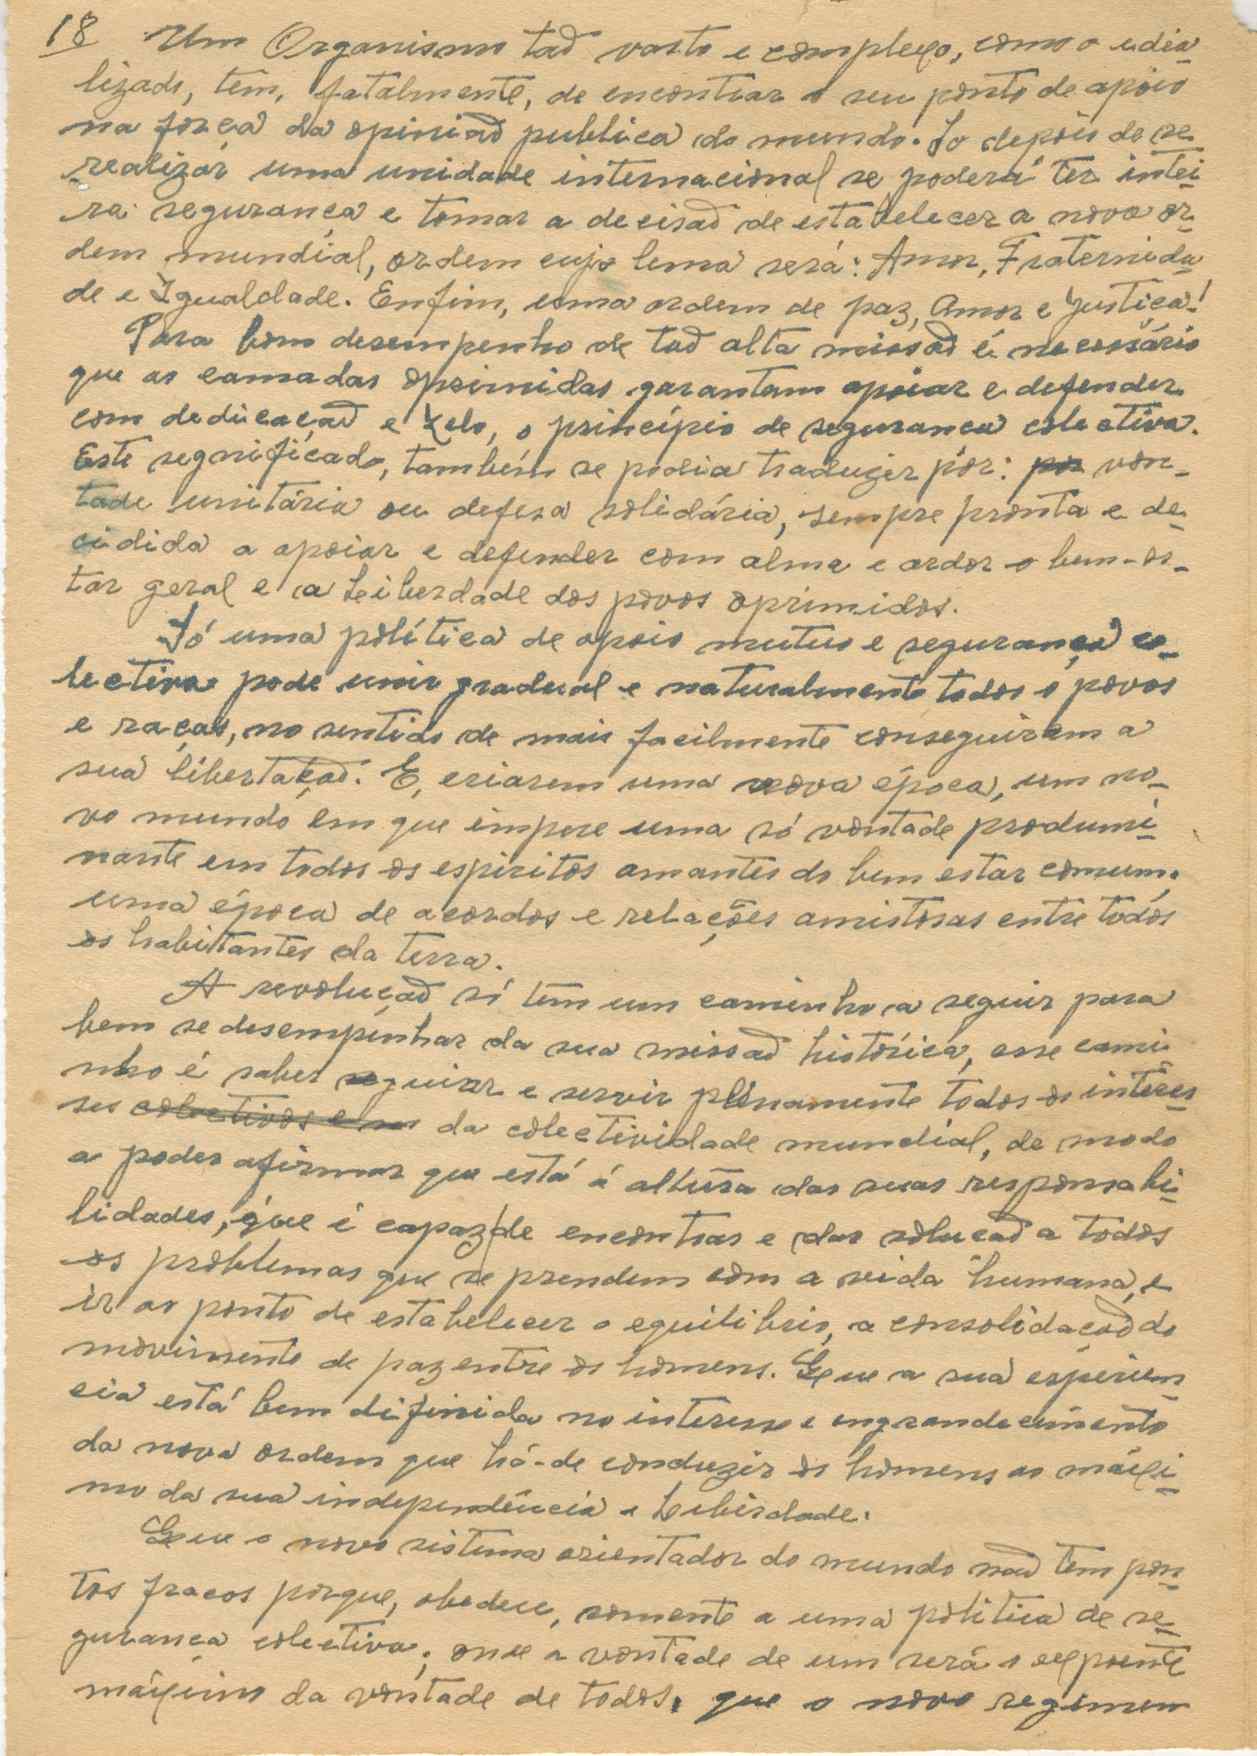 18 Um Organismo tão vasto e complexo, como o idia-
lizado, tem, fatalmente, de encontrar o seu ponto de apoio
na força da opinião publica do mundo. Só depois de se
realizar uma unidade internacional se poderá ter intei-
ra segurança e tomar a decisão de estabelecer a nova or-
dem mundial, ordem cujo lema será: Amor, Fraternida-
de e Igualdade. Enfim, uma ordem de paz, Amor e Justiça!
Para bom desempenho de tão alta missão é necessário
que as camadas oprimidas garantam apoiar e defender
com dedicação e zelo, o princípio de segurança colectiva.
Este segnificado, também se podia traduzir por: por von-
tade unitária ou defesa solidária, sempre pronta e de-
cidida a apoiar e defender com alma e ardor o bem-es-
tar geral e a Leiberdade dos povos oprimidos.
Só uma política de apoio mutuo e segurança co-
lectiva pode unir gradual e naturalmente todos o povos
e raças, no sentido de mais facilmente conseguirem a
sua libertação. E, criarem uma nova época, um no-
vo mundo em que impere uma só vontade produmi-
nante em todos os espiritos amantes do bem estar comum;
uma época de acordos e relações amistosas entre todos
os habitantes da terra.
A revolução só tem um caminho a seguir para
bem se desempenhar da sua missão histórica, esse cami-
nho é saber seguir e servir plenamente todos os interes-
ses colectivos e da colectividade mundial, de modo
a poder afirmar que está á altura das suas responsabi-
lidades, que é capaz de encontrar e dar solução a todos
os problemas que se prendem com a vida humana, e
ir ao ponto de estabelecer o equilibrio, a consolidação do
movimento de paz entre os homens. Que a sua espérien-
cia está bem difinida no interesse e engrandecimento
da nova ordem que há-de conduzir os homens ao máxi-
mo da sua independência e Leberdade.
Que o novo sistema orientador do mundo não tem pon-
tos fracos porque, obedece, somente a uma politica de se-
gurança colectiva; onde a vontade de um será o expoente
máximo da vontade de todos. que o novo regimem